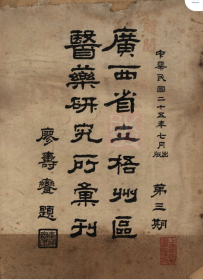 中華民國二十五年七月出版
廣西省立梧州區
醫藥研究所彙刊
第三期
廖壽鑾題